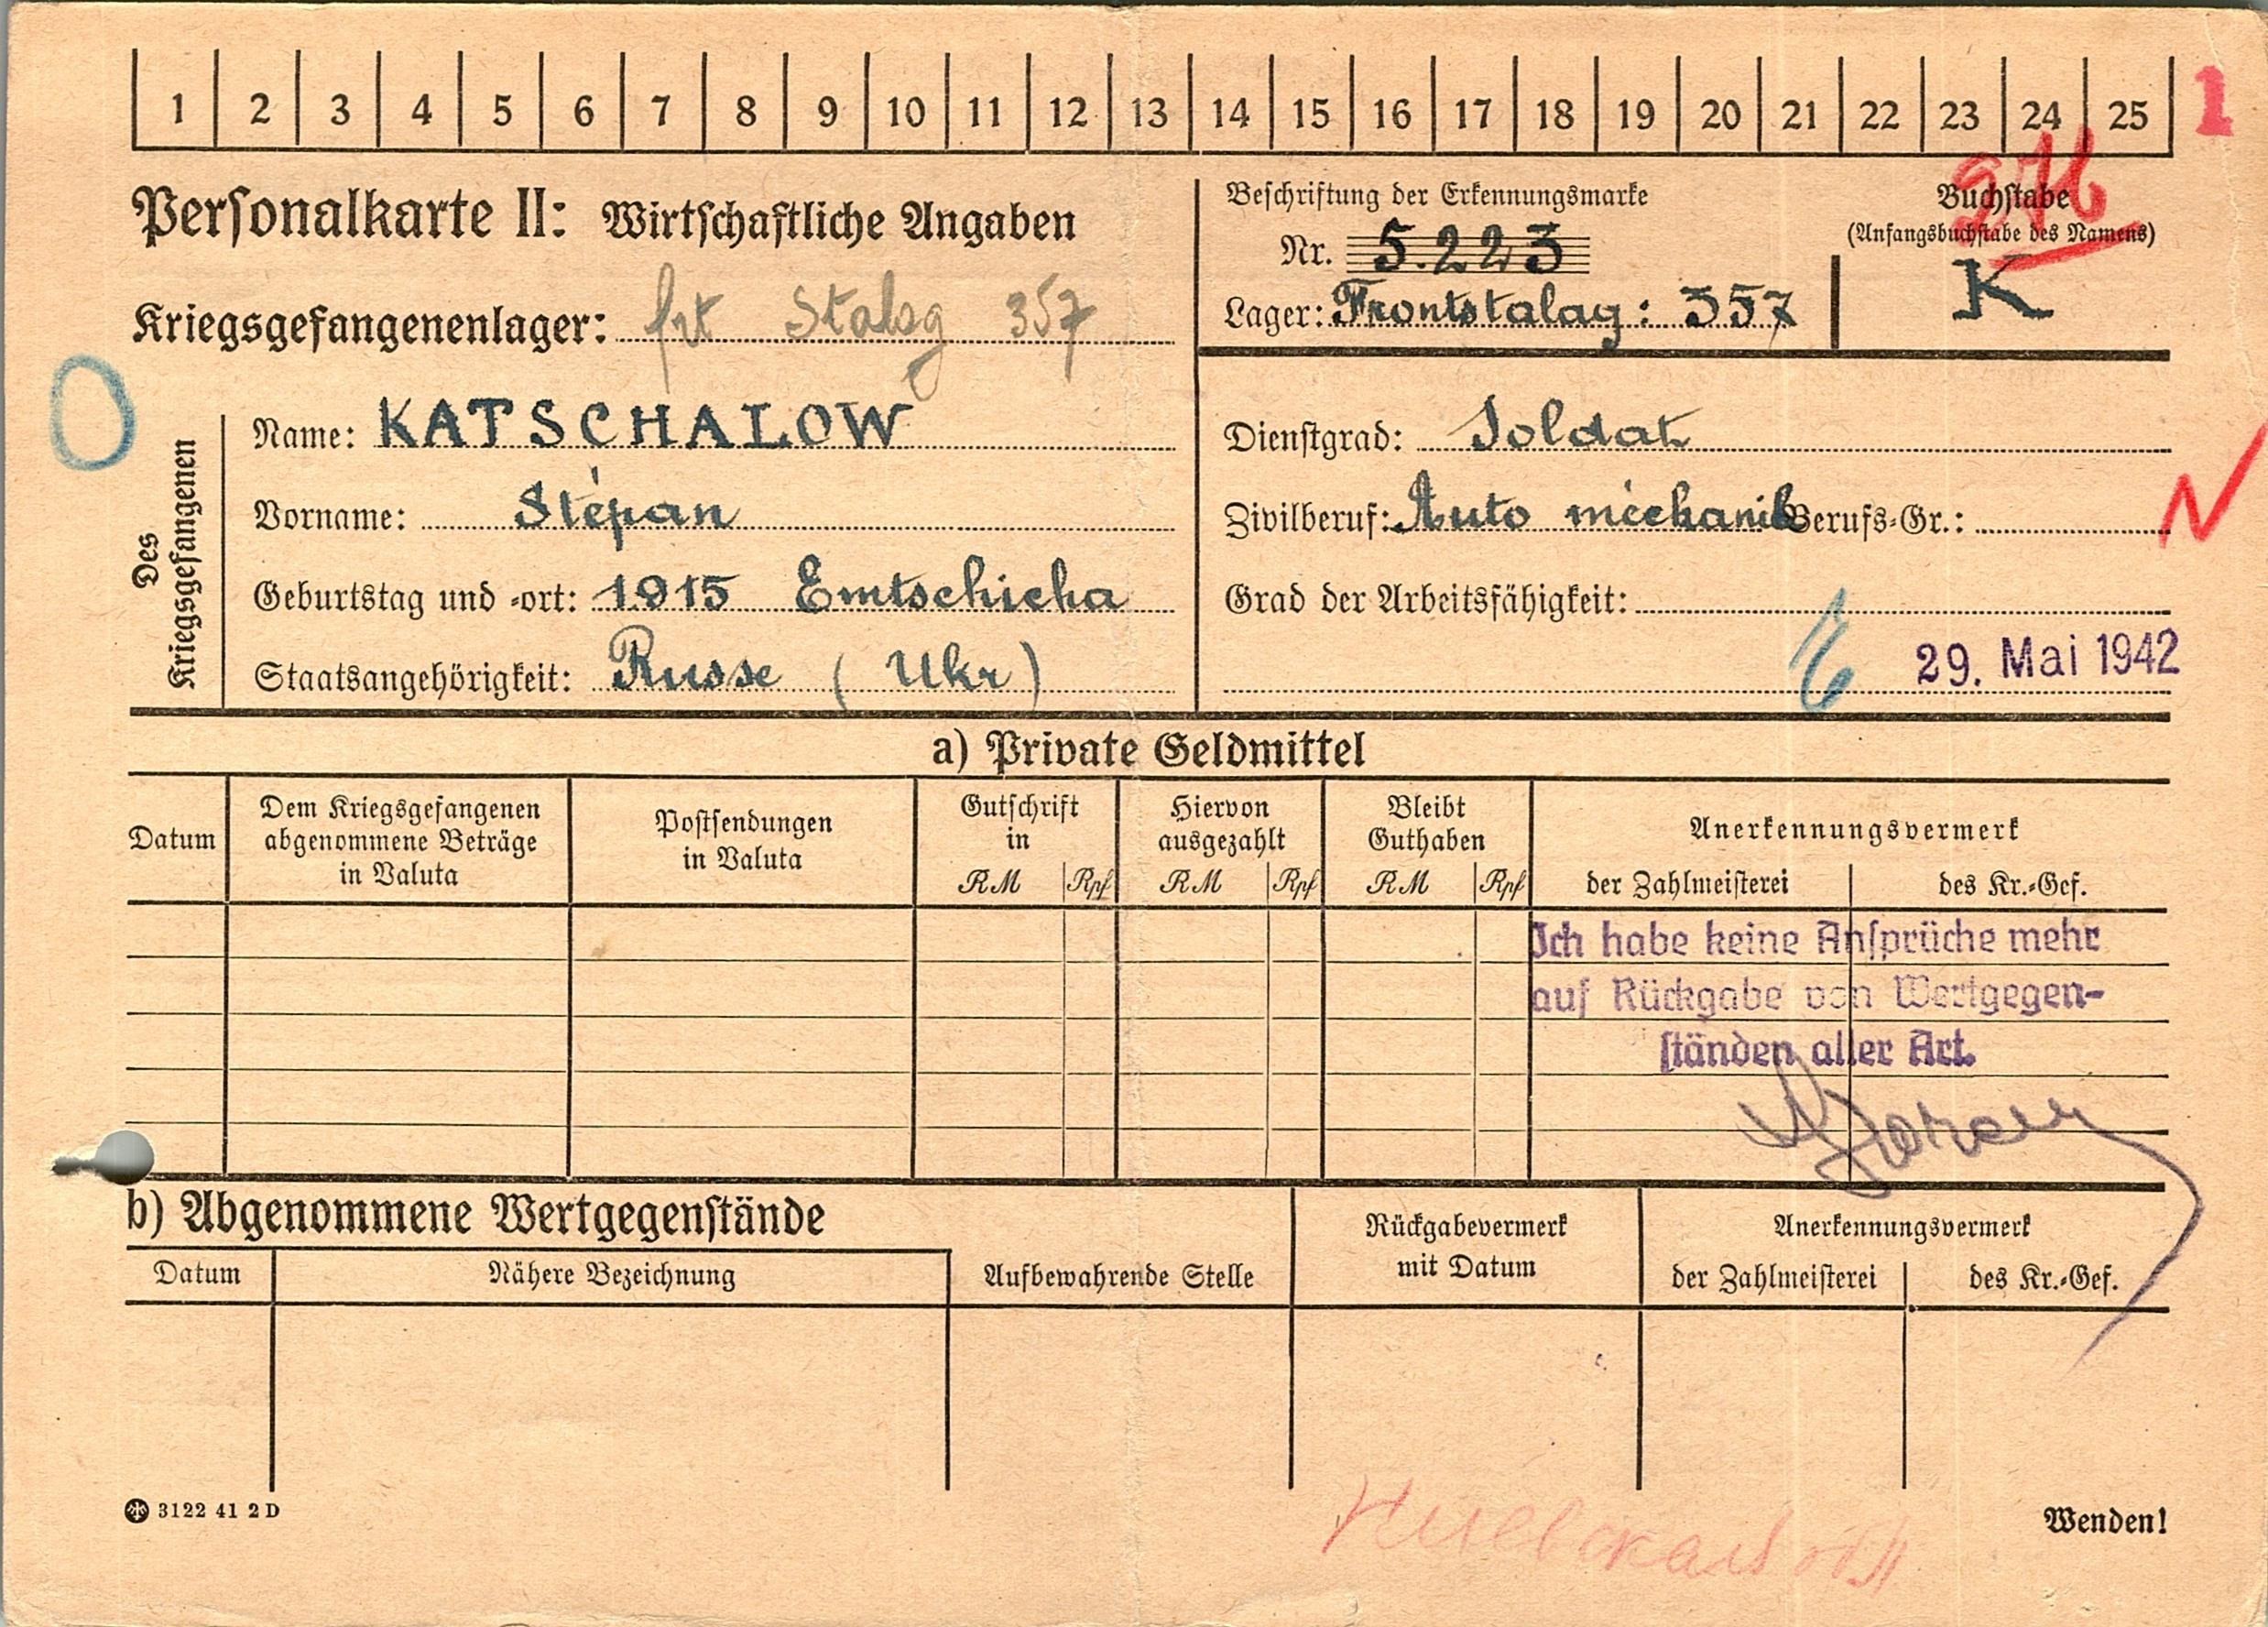 1 2 3 4 5 6 7 8 9 10 11 12 13 14 15 16 17 18 19 20 21 22 23 24 25
1
Personalkarte II: Wirtschaftliche Angaben
Kriegsgefangenenlager: frt Stalag 357
Beschriftung der Erkennungsmarke
Nr. 5.223
Lager: Frontstalag: 357
Buchstabe
(Anfangsbuchstabe des Namens)
K
Des Kriegsgefangenen
Name: KATSCHALOW
Vorname: Stépan
Geburtstag und -ort: 1915 Emtschicha
Staatsangehörigkeit: Russe (Ukr)
Dienstgrad: Soldat
Zivilberuf: Auto méchanik Berufs-Gr.:
Grad der Arbeitsfähigkeit:
29. Mai 1942
a) Private Geldmittel
Datum
Dem Kriegsgefangenen
abgenommene Beträge
in Valuta
Postsendungen
in Valuta
Gutschrift
in
RM Rpf
Hiervon
ausgezahlt
RM Rpf
Bleibt
Guthaben
RM Rpf
Anerkennungsvermerk
der Zahlmeisterei des Kr.-Gef.
Ich habe keine Ansprüche mehr
auf Rückgabe von Wertgegen-
ständen aller Art.
b) Abgenommene Wertgegenstände
Datum
Nähere Bezeichnung
Aufbewahrende Stelle
Rückgabevermerk
mit Datum
Anerkennungsvermerk
der Zahlmeisterei des Kr.-Gef.
3122 41 2 D
Wenden!